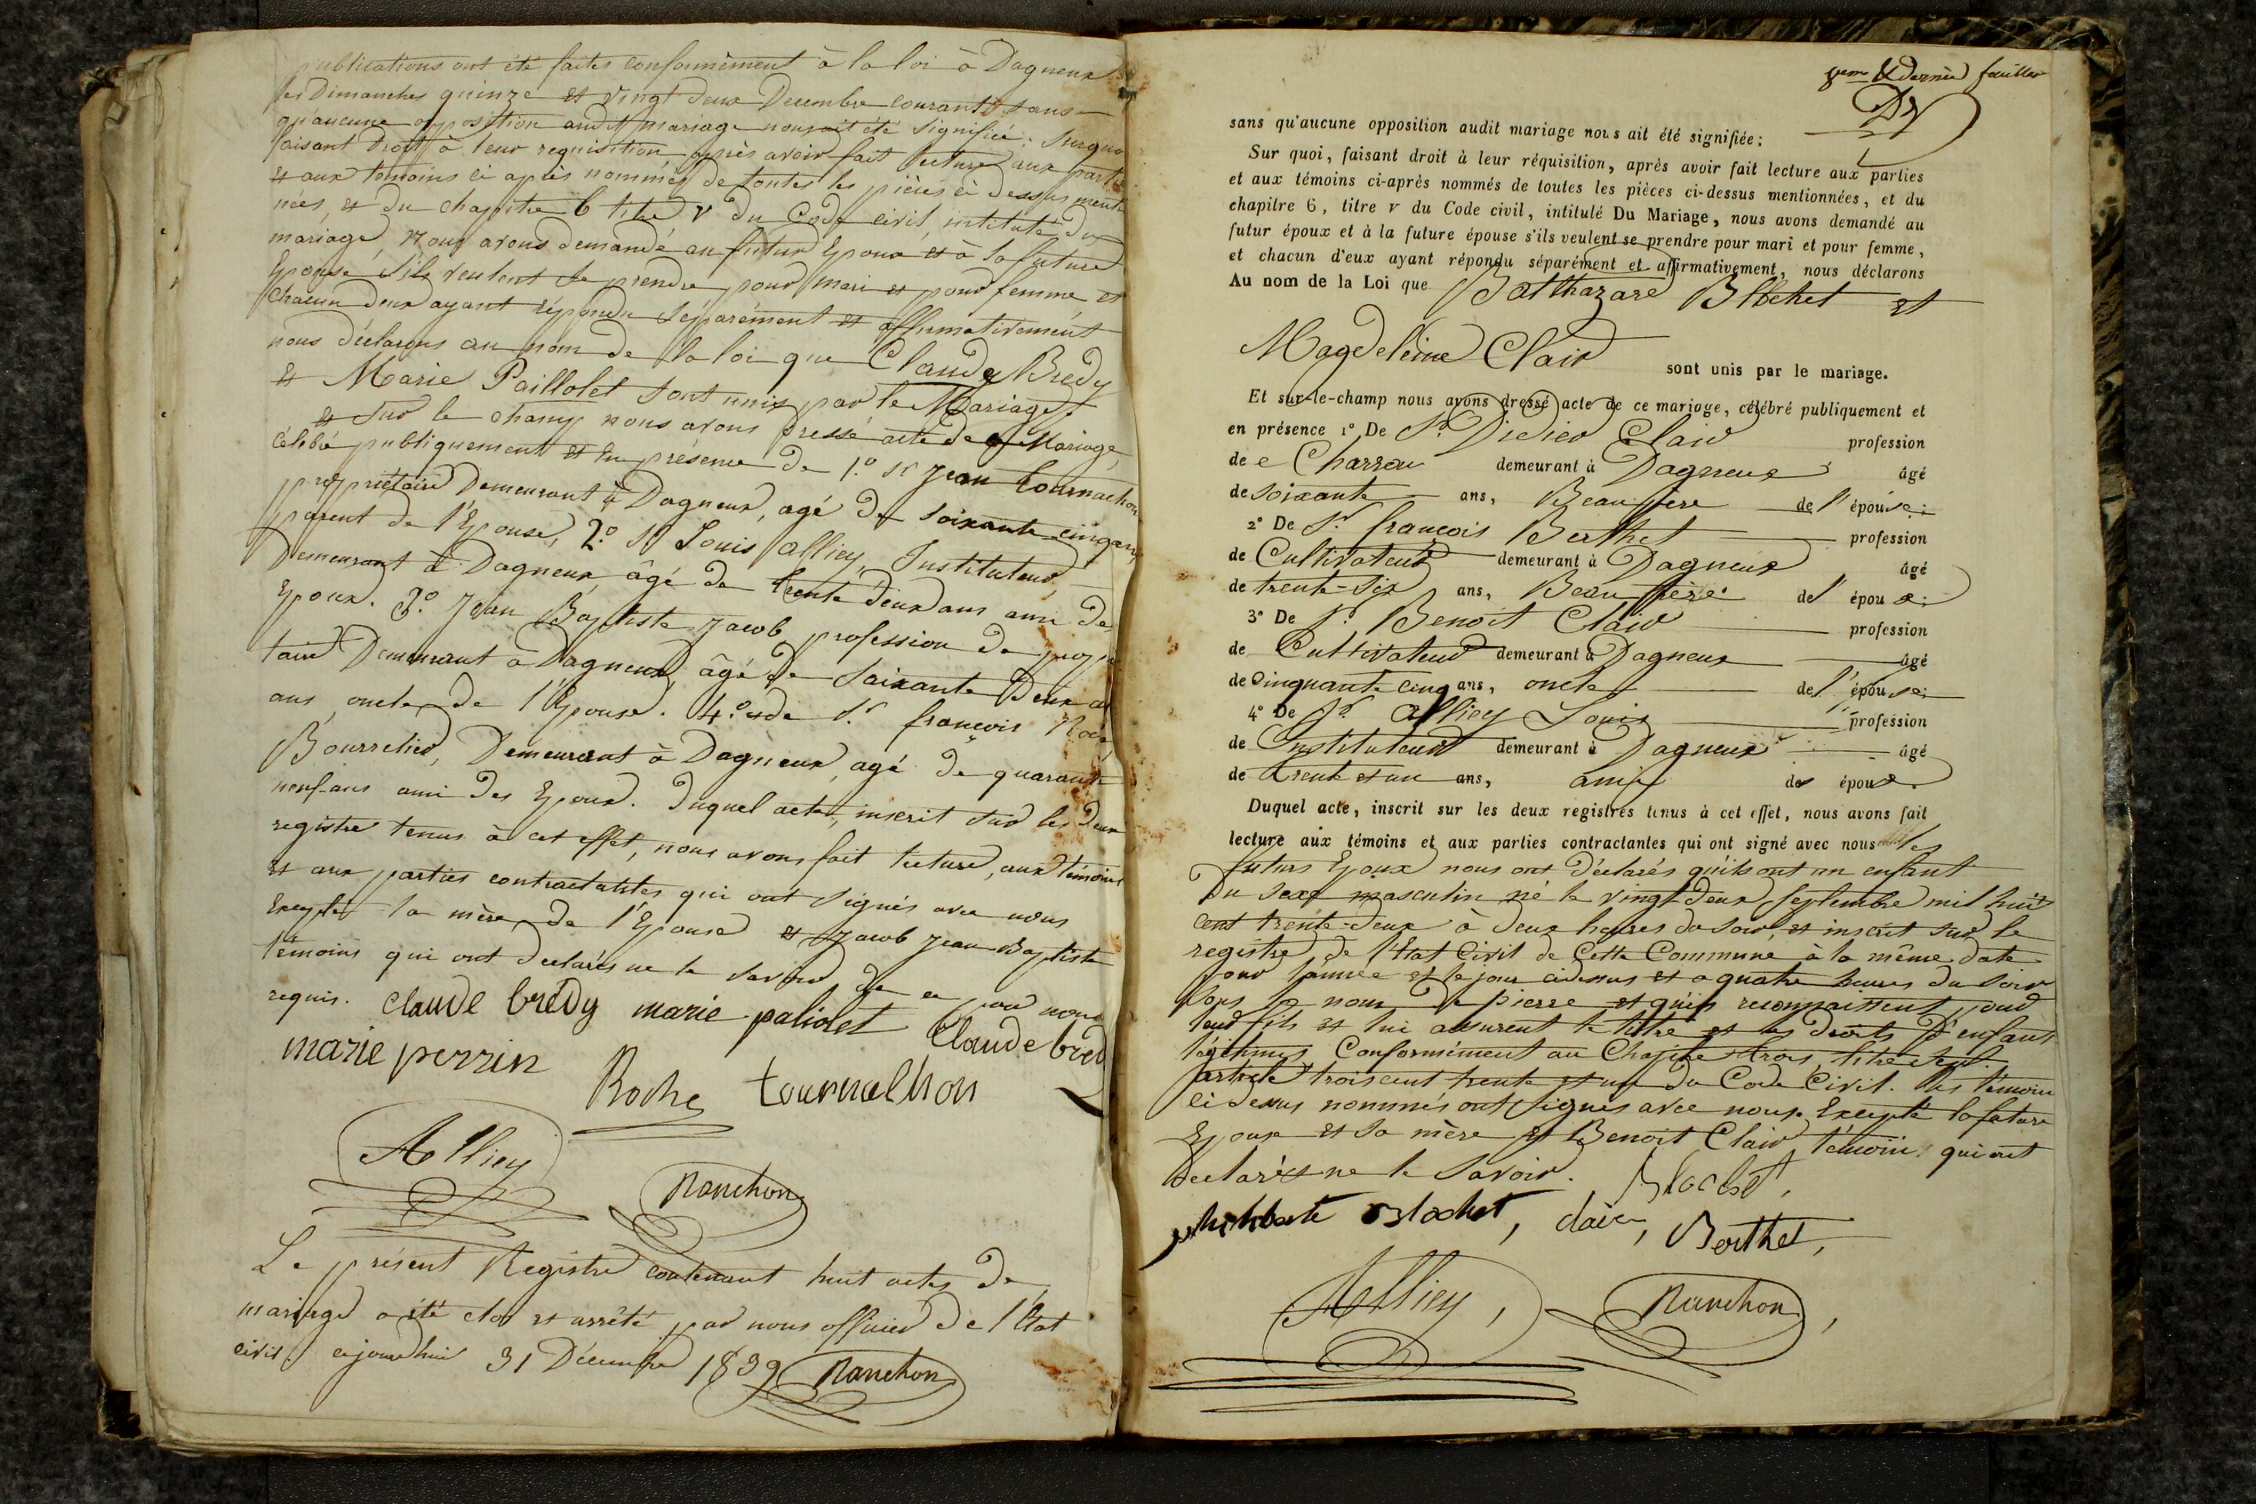 publications ont été faites conformément à la loi à Dagneux
les Dimanches quinze et vingt deux Decembre courant sans
qu'aucune opposition audit mariage nous ait été signifiée; Surquoi
faisant Droit à leur requisition après avoir fait lecture aux parties
et aux temoins ci après nommés de toutes les pièces ci dessus mention
nées, et du chapitre 6 titre V du Code civil, intitulé du
mariage, nous avons demandé au futur Epoux et à la future
Epouse s'ils veulent se prendre pour mari et pour femme, et
chacun d'eux ayant répondu séparément et affirmativement
nous déclarons au nom de la loi que Claude Bredy
et Marie Paillolet sont unis par le Mariage.
et sur le champ nous avons dressé acte de ce Mariage,
célébré publiquement et En présence de 1.º Sr Jean tournachon
propriétaire Demeurant à Dagneux, agé de soixante cinq ans,
parent de l'Epouse, 2.º Sr Louis Alliey, Instituteur,
Demeurant à Dagneux âgé de trente deux ans ami des
Epoux. 3.º Jean Baptiste Jacob profession de proprié
taire Demeurant à Dagneux âgé de Soixante Deux
ans oncle de l'Epouse. 4.º de Sr françois Roche
Bourrelier, Demeurant à Dagneux, agé de quarante
neuf ans ami des Epoux. Duquel acte, inscrit sur les deux
registres tenus à cet effet, nous avons fait lecture, aux témoins
et aux parties contractantes qui ont signés avec nous
Excepté la mère de l'Epouse et Jacob Jean Baptiste
témoins qui ont declarés ne le savoir de ce par nous
requis. Claude bredy marie paliolet Claude bred
marie perrin Roche tournachon
Alliey Ranchon
Le présent Registre contenant huit actes de
mariage a été clos et arrêté par nous officier de l'Etat
civil cejourd'hui 31 Décembre 1839 Ranchon
8eme & dernier feuillet
sans qu'aucune opposition audit mariage nous ait été signifiée;
Sur quoi, faisant droit à leur réquisition, après avoir fait lecture aux parties
et aux témoins ci-après nommés de toutes les pièces ci-dessus mentionnées, et du
chapitre 6, titre V du Code civil, intitulé Du Mariage, nous avons demandé au
futur époux et à la future épouse s'ils veulent se prendre pour mari et pour femme,
et chacun d'eux ayant répondu séparément et affirmativement, nous déclarons
Au nom de la Loi que Balthazare Blochet et
Magdeleine Clair sont unis par le mariage.
Et sur-le-champ nous avons dressé acte de ce mariage, célébré publiquement et
en présence 1º De Sr. Didier Clair profession
de Charron demeurant à Dagneux âgé
de soixante ans, Beau père de l'épouse;
2º De Sr. françois Berthet profession
de Cultivateur demeurant à Dagneux âgé
de trente-six ans, Beau frère de l'époux;
3º De Sr. Benoit Clair profession
de Cultivateur demeurant à Dagneux âgé
de Cinquante cinq ans, oncle de l'épouse;
4º De Sr. Alliey Louis profession
de Instituteur demeurant à Dagneux âgé
de trente et un ans, ami des époux.
Duquel acte, inscrit sur les deux registres tenus à cet effet, nous avons fait
lecture aux témoins et aux parties contractantes qui ont signé avec nous les
futurs Epoux nous ont déclarés qu'ils ont un enfant
Du sexe masculin né le vingt deux Septembre mil huit
cent trente-deux à deux heures du soir, et inscrit sur le
registre de l'Etat Civil de Cette Commune à la même date
pour l'année et le jour cidessus et a quatre heures du Soir
sous le nom de pierre et qu'ils reconnaissent pour
leur fils et lui assurent le titre et les droits d'enfant
légitimes Conformément au Chapitre trois, titre sept.
article trois cent trente et un du Code Civil. Les témoins
ci dessus nommés ont signés avec nous, Excepté la future
Epouse et sa mère et Benoit Clair témoin, qui ont
declarés ne le savoir. Blochet,
philiberte Blochet, clair, Berthet,
Alliey, Ranchon,